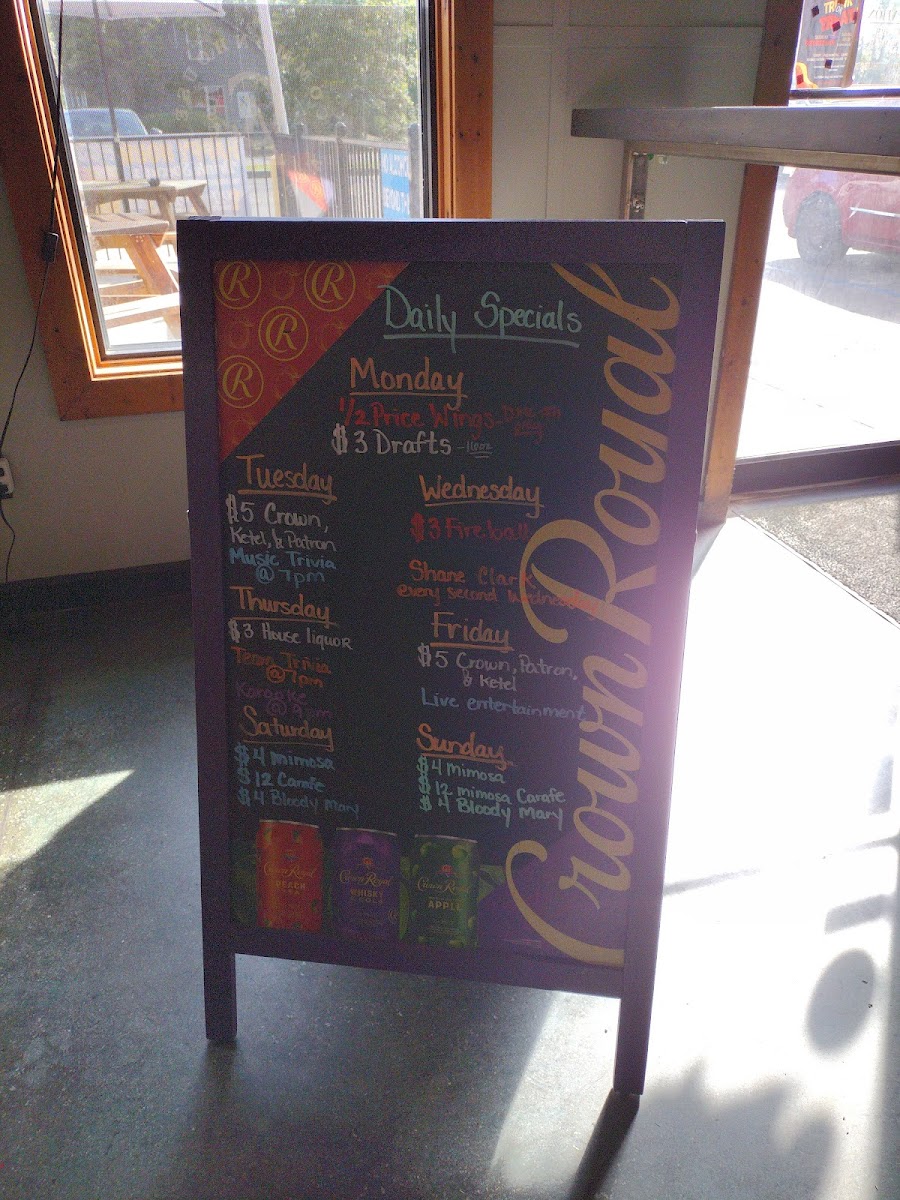 Daily Specials
Monday
1/2 Price Wings - Dine in
only
$3 Drafts - 16oz
Tuesday
$5 Crown,
Ketel, & Patron
Music Trivia
@ 7pm
Wednesday
$3 Fireball
Shane Clark
every second Wednesday
Thursday
$3 House liquor
Team Trivia
@ 7pm
Karaoke
@ 9pm
Friday
$5 Crown, Patron,
& Ketel
Live entertainment
Saturday
$4 mimosa
$12 Carafe
$4 Bloody Mary
Sunday
$4 Mimosa
$12 mimosa Carafe
$4 Bloody Mary
Crown Royal
R
R
R
R
Crown Royal
PEACH
TEA
Crown Royal
WHISKY
& COLA
Crown Royal
APPLE